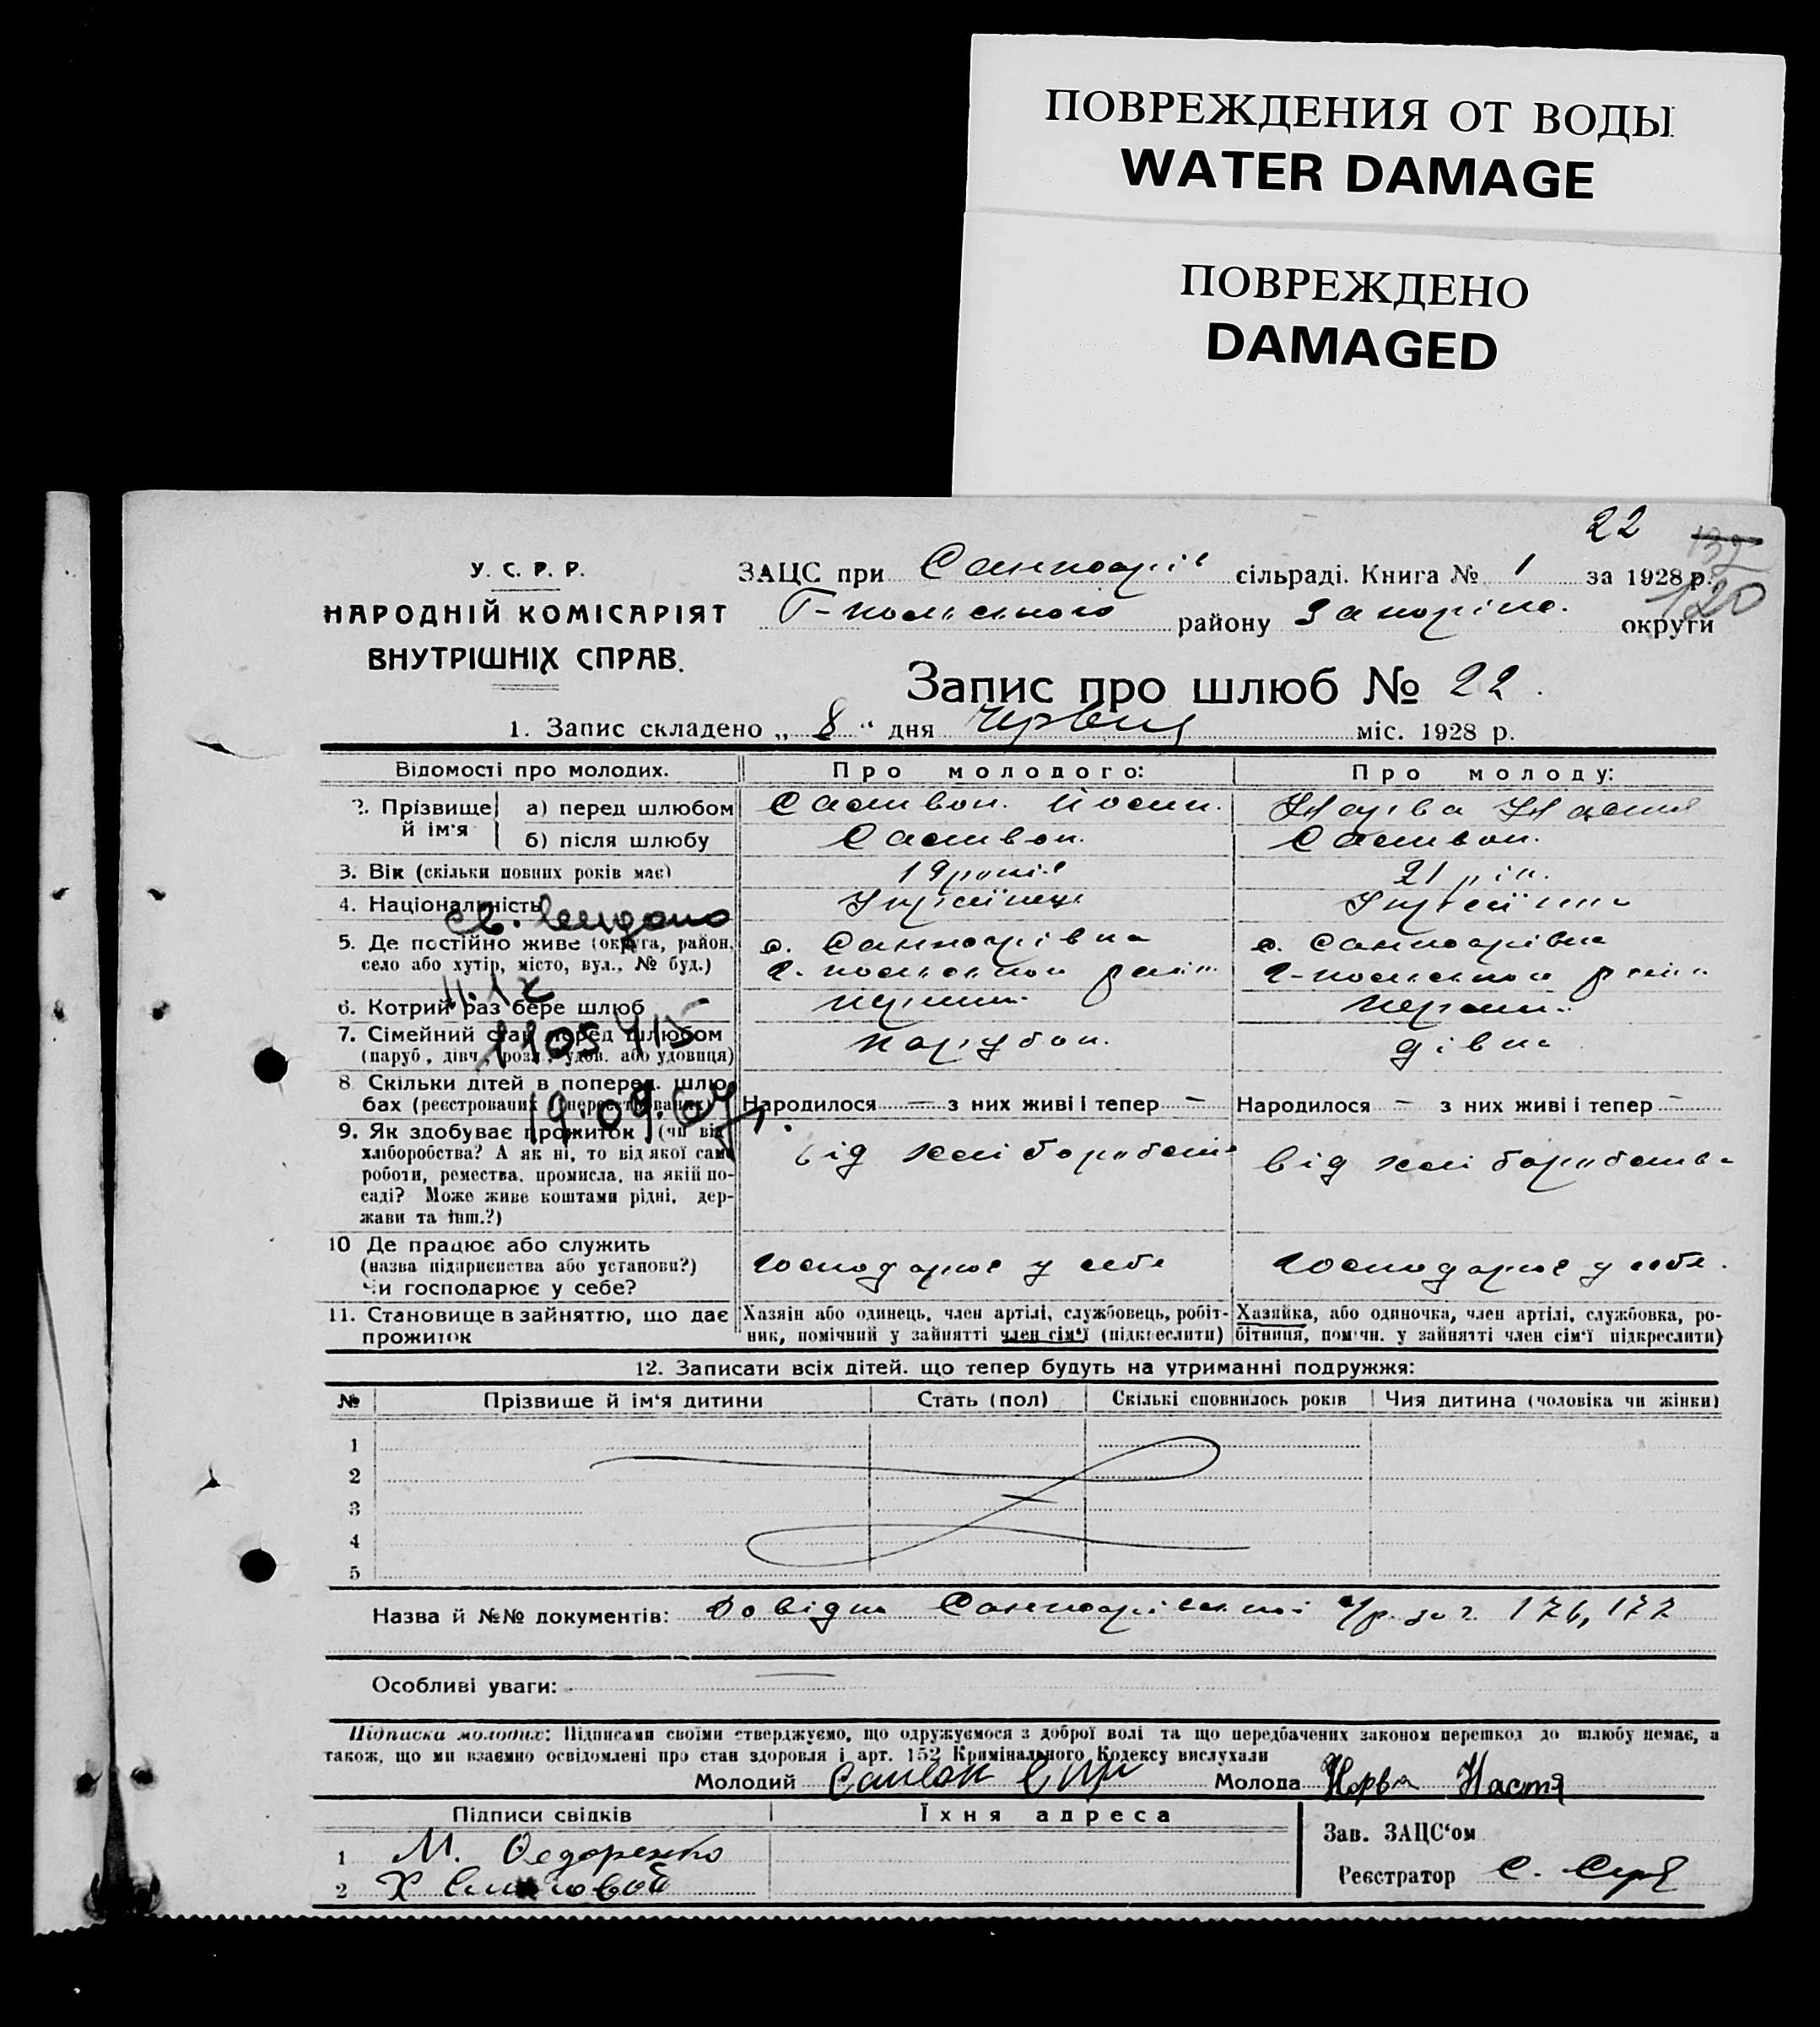 ПОВРЕЖДЕНИЯ ОТ ВОДЫ
WATER DAMAGE
ПОВРЕЖДЕНО
DAMAGED
22
132
120
У. С. Р. Р.
НАРОДНІЙ КОМІСАРІЯТ
ВНУТРІШНІХ СПРАВ.
ЗАЦС при сільраді. Книга № 1 за 1928 р.
району Запоріж. округи
Запис про шлюб № 22.
1. Запис складено „ 8 “ дня Червня міс. 1928 р.
Відомості про молодих. Про молодого: Про молоду:
2. Прізвище й ім'я а) перед шлюбом
б) після шлюбу
3. Вік (скільки повних років має) 19 років 21 рік.
4. Національність Українець Українка
5. Де постійно живе (округа, район, село або хутір, місто, вул., № буд.)
6. Котрий раз бере шлюб перший перший
7. Сімейний стан перед шлюбом (паруб., дівч., розл., удов. або удовиця) парубок. дівка
11.IX
1105415
19.09.67
8 Скільки дітей в поперед. шлюбах (реєстрованих і нереєстрованих) Народилося — з них живі і тепер — Народилося — з них живі і тепер —
9. Як здобуває прожиток (чи від хліборобства? А як ні, то від якої саме роботи, ремества, промисла, на якій посаді? Може живе коштами рідні, держави та інш.?) від хліборобства від хліборобства
10 Де працює або служить (назва підприємства або установи?) Чи господарює у себе? господарює у себе господарює у себе.
11. Становище в зайняттю, що дає прожиток
Хазяїн або одинець, член артілі, службовець, робітник, помічний у зайнятті член сім'ї (підкреслити)
Хазяйка, або одиночка, член артілі, службовка, робітниця, помічн. у зайнятті член сім'ї підкреслити)
12. Записати всіх дітей. що тепер будуть на утриманні подружжя:
№ Прізвище й ім'я дитини Стать (пол) Скількі сповнилось років Чия дитина (чоловіка чи жінки)
1
2
3
4
5
Назва й №№ документів: Довідки 176, 177
Особливі уваги: —
Підписка молодих: Підписами своїми стверджуємо, що одружуємося з доброї волі та що передбачених законом перешкод до шлюбу немає, а
також, що ми взаємно освідомлені про стан здоровля і арт. 152 Кримінального Кодексу вислухали
Молодий Молода Настя
Підписи свідків Їхня адреса
Зав. ЗАЦС‘ом
1 М. Федоренко
Реєстратор
2